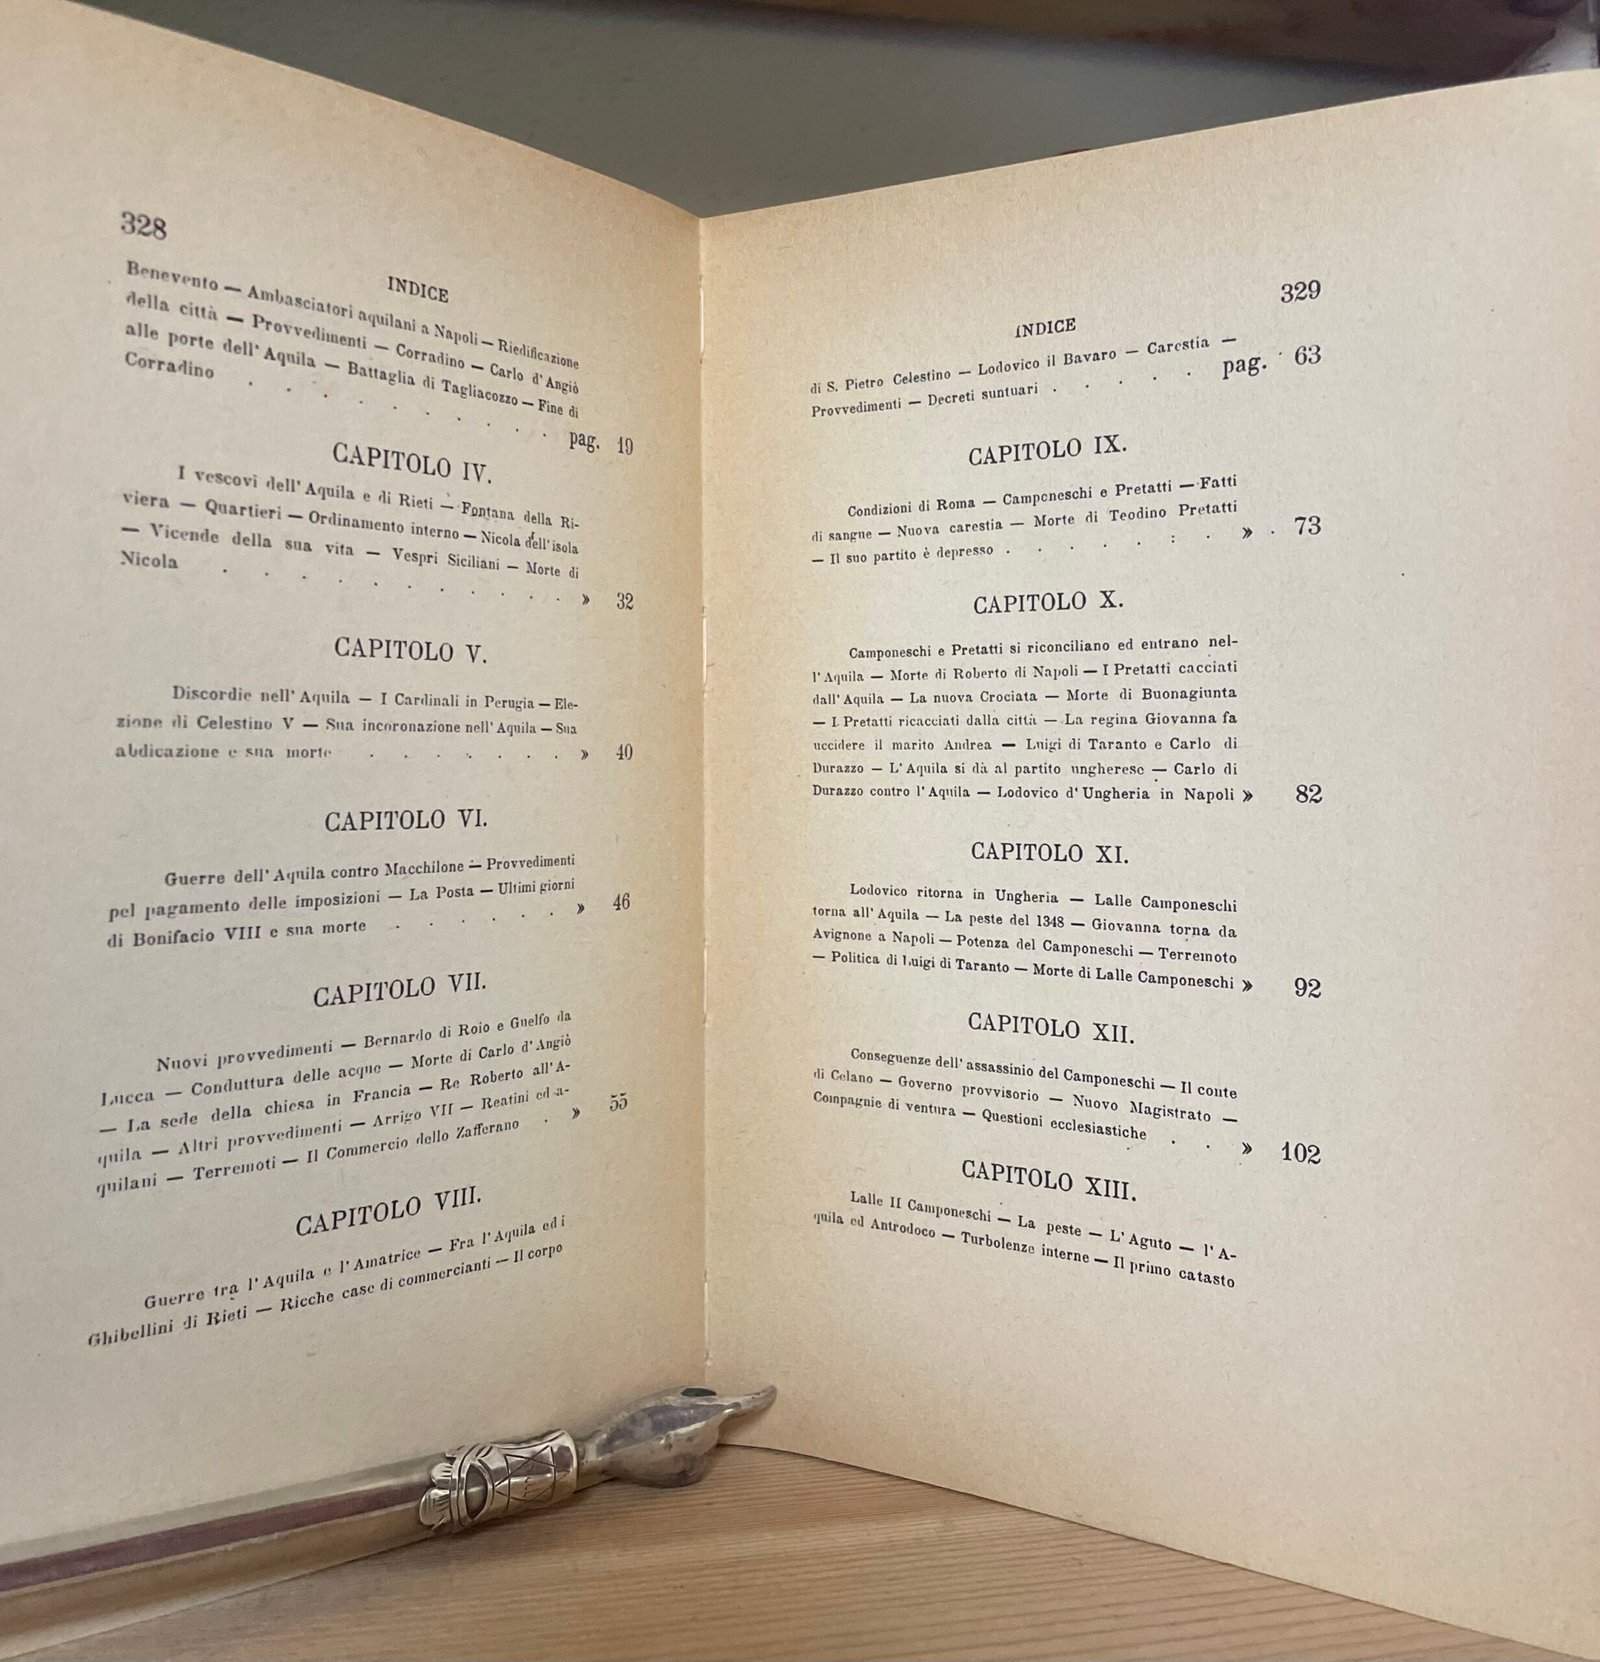 328
INDICE
Benevento — Ambasciatori aquilani a Napoli — Riedificazione
della città — Provvedimenti — Corradino — Carlo d'Angiò
alle porte dell'Aquila — Battaglia di Tagliacozzo — Fine di
Corradino . . . . . . . . pag. 19
CAPITOLO IV.
I vescovi dell'Aquila e di Rieti — Fontana della Ri-
viera — Quartieri — Ordinamento interno — Nicola dell'isola
— Vicende della sua vita — Vespri Siciliani — Morte di
Nicola . . . . . . . . . . » 32
CAPITOLO V.
Discordie nell'Aquila — I Cardinali in Perugia — Ele-
zione di Celestino V — Sua incoronazione nell'Aquila — Sua
abdicazione e sua morte . . . . . . . » 40
CAPITOLO VI.
Guerre dell'Aquila contro Macchilone — Provvedimenti
pel pagamento delle imposizioni — La Posta — Ultimi giorni
di Bonifacio VIII e sua morte . . . . . . » 46
CAPITOLO VII.
Nuovi provvedimenti — Bernardo di Roio e Guelfo da
Lucca — Conduttura delle acque — Morte di Carlo d'Angiò
— La sede della chiesa in Francia — Re Roberto all'A-
quila — Altri provvedimenti — Arrigo VII — Reatini ed a-
quilani — Terremoti — Il Commercio dello Zafferano . » 55
CAPITOLO VIII.
Guerre tra l'Aquila e l'Amatrice — Fra l'Aquila ed i
Ghibellini di Rieti — Ricche case di commercianti — Il corpo
329
INDICE
di S. Pietro Celestino — Lodovico il Bavaro — Carestia —
Provvedimenti — Decreti suntuari . . . . . pag. 63
CAPITOLO IX.
Condizioni di Roma — Camponeschi e Pretatti — Fatti
di sangue — Nuova carestia — Morte di Teodino Pretatti
— Il suo partito è depresso . . . . . : . » . 73
CAPITOLO X.
Camponeschi e Pretatti si riconciliano ed entrano nel-
l'Aquila — Morte di Roberto di Napoli — I Pretatti cacciati
dall'Aquila — La nuova Crociata — Morte di Buonagiunta
— I Pretatti ricacciati dalla città — La regina Giovanna fa
uccidere il marito Andrea — Luigi di Taranto e Carlo di
Durazzo — L'Aquila si dà al partito ungherese — Carlo di
Durazzo contro l'Aquila — Lodovico d'Ungheria in Napoli » 82
CAPITOLO XI.
Lodovico ritorna in Ungheria — Lalle Camponeschi
torna all'Aquila — La peste del 1348 — Giovanna torna da
Avignone a Napoli — Potenza del Camponeschi — Terremoto
— Politica di Luigi di Taranto — Morte di Lalle Camponeschi » 92
CAPITOLO XII.
Conseguenze dell'assassinio del Camponeschi — Il conte
di Celano — Governo provvisorio — Nuovo Magistrato —
Compagnie di ventura — Questioni ecclesiastiche . . » 102
CAPITOLO XIII.
Lalle II Camponeschi — La peste — L'Aguto — l'A-
quila ed Antrodoco — Turbolenze interne — Il primo catasto